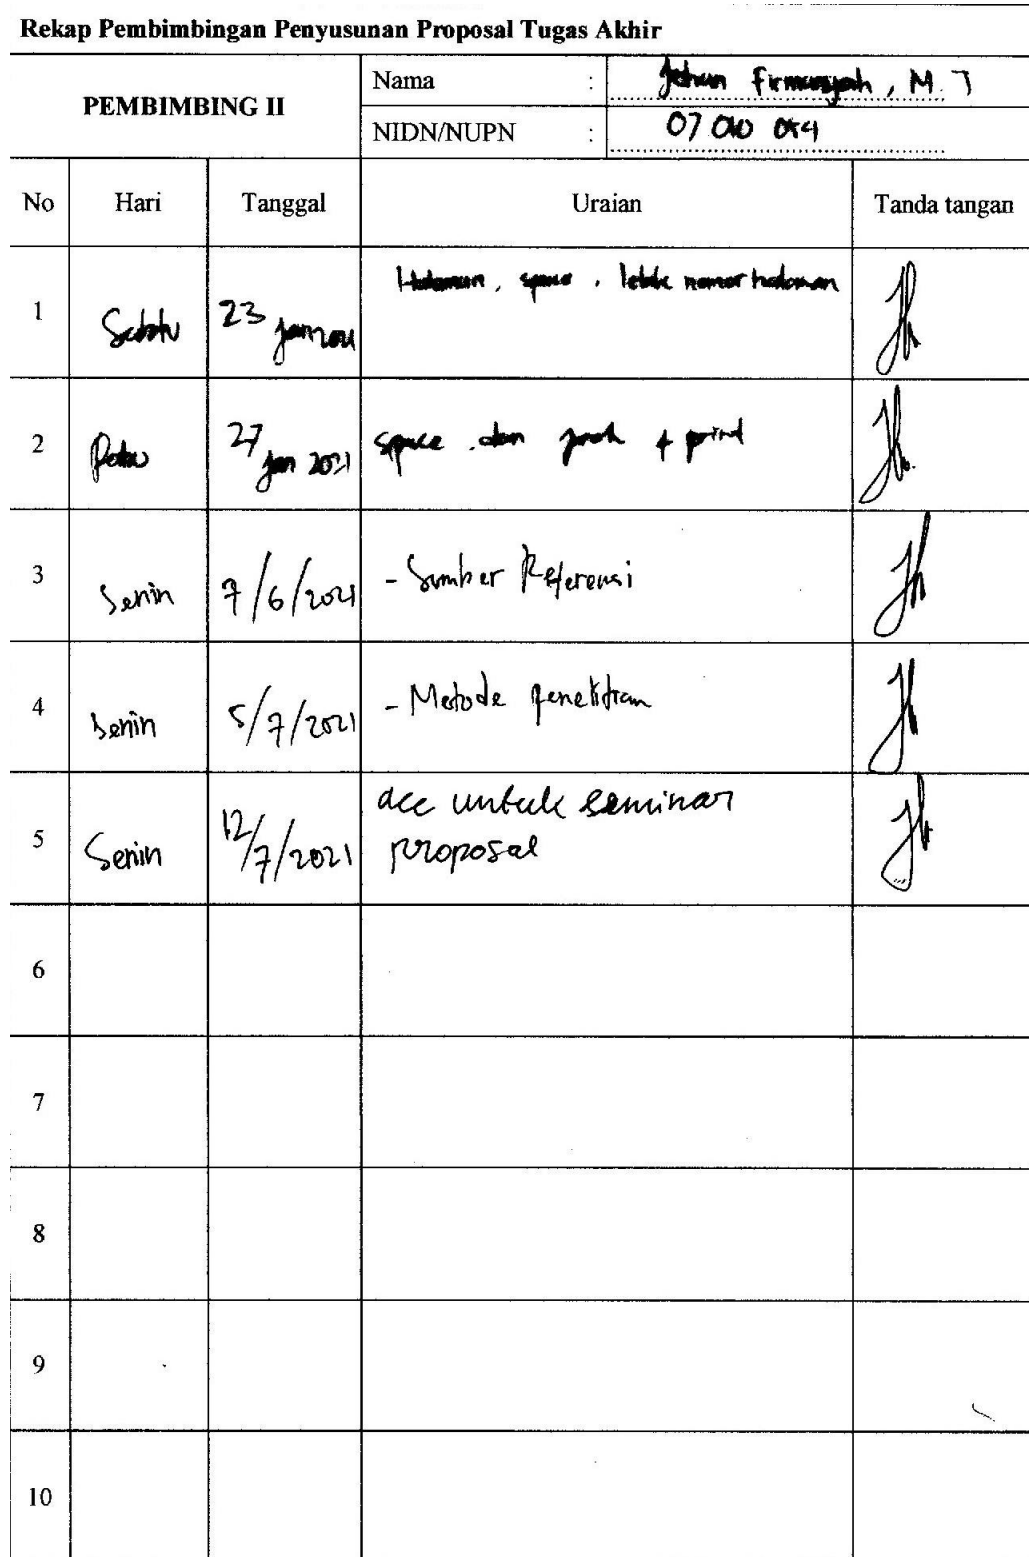 Rekap Pembimbingan Penyusunan Proposal Tugas Akhir
PEMBIMBING II
Nama : Firmansyah, M. T
NIDN/NUPN : 07
No Hari Tanggal Uraian Tanda tangan
1 Sabtu 23 Jan 2021 Halaman, space, letak nomor halaman
2 Rabu 27 Jan 2021 space dan print
3 Senin 7/6/2021 - Sumber Referensi
4 Senin 5/7/2021 - Metode penelitian
5 Senin 12/7/2021 acc untuk seminar
proposal
6
7
8
9
10